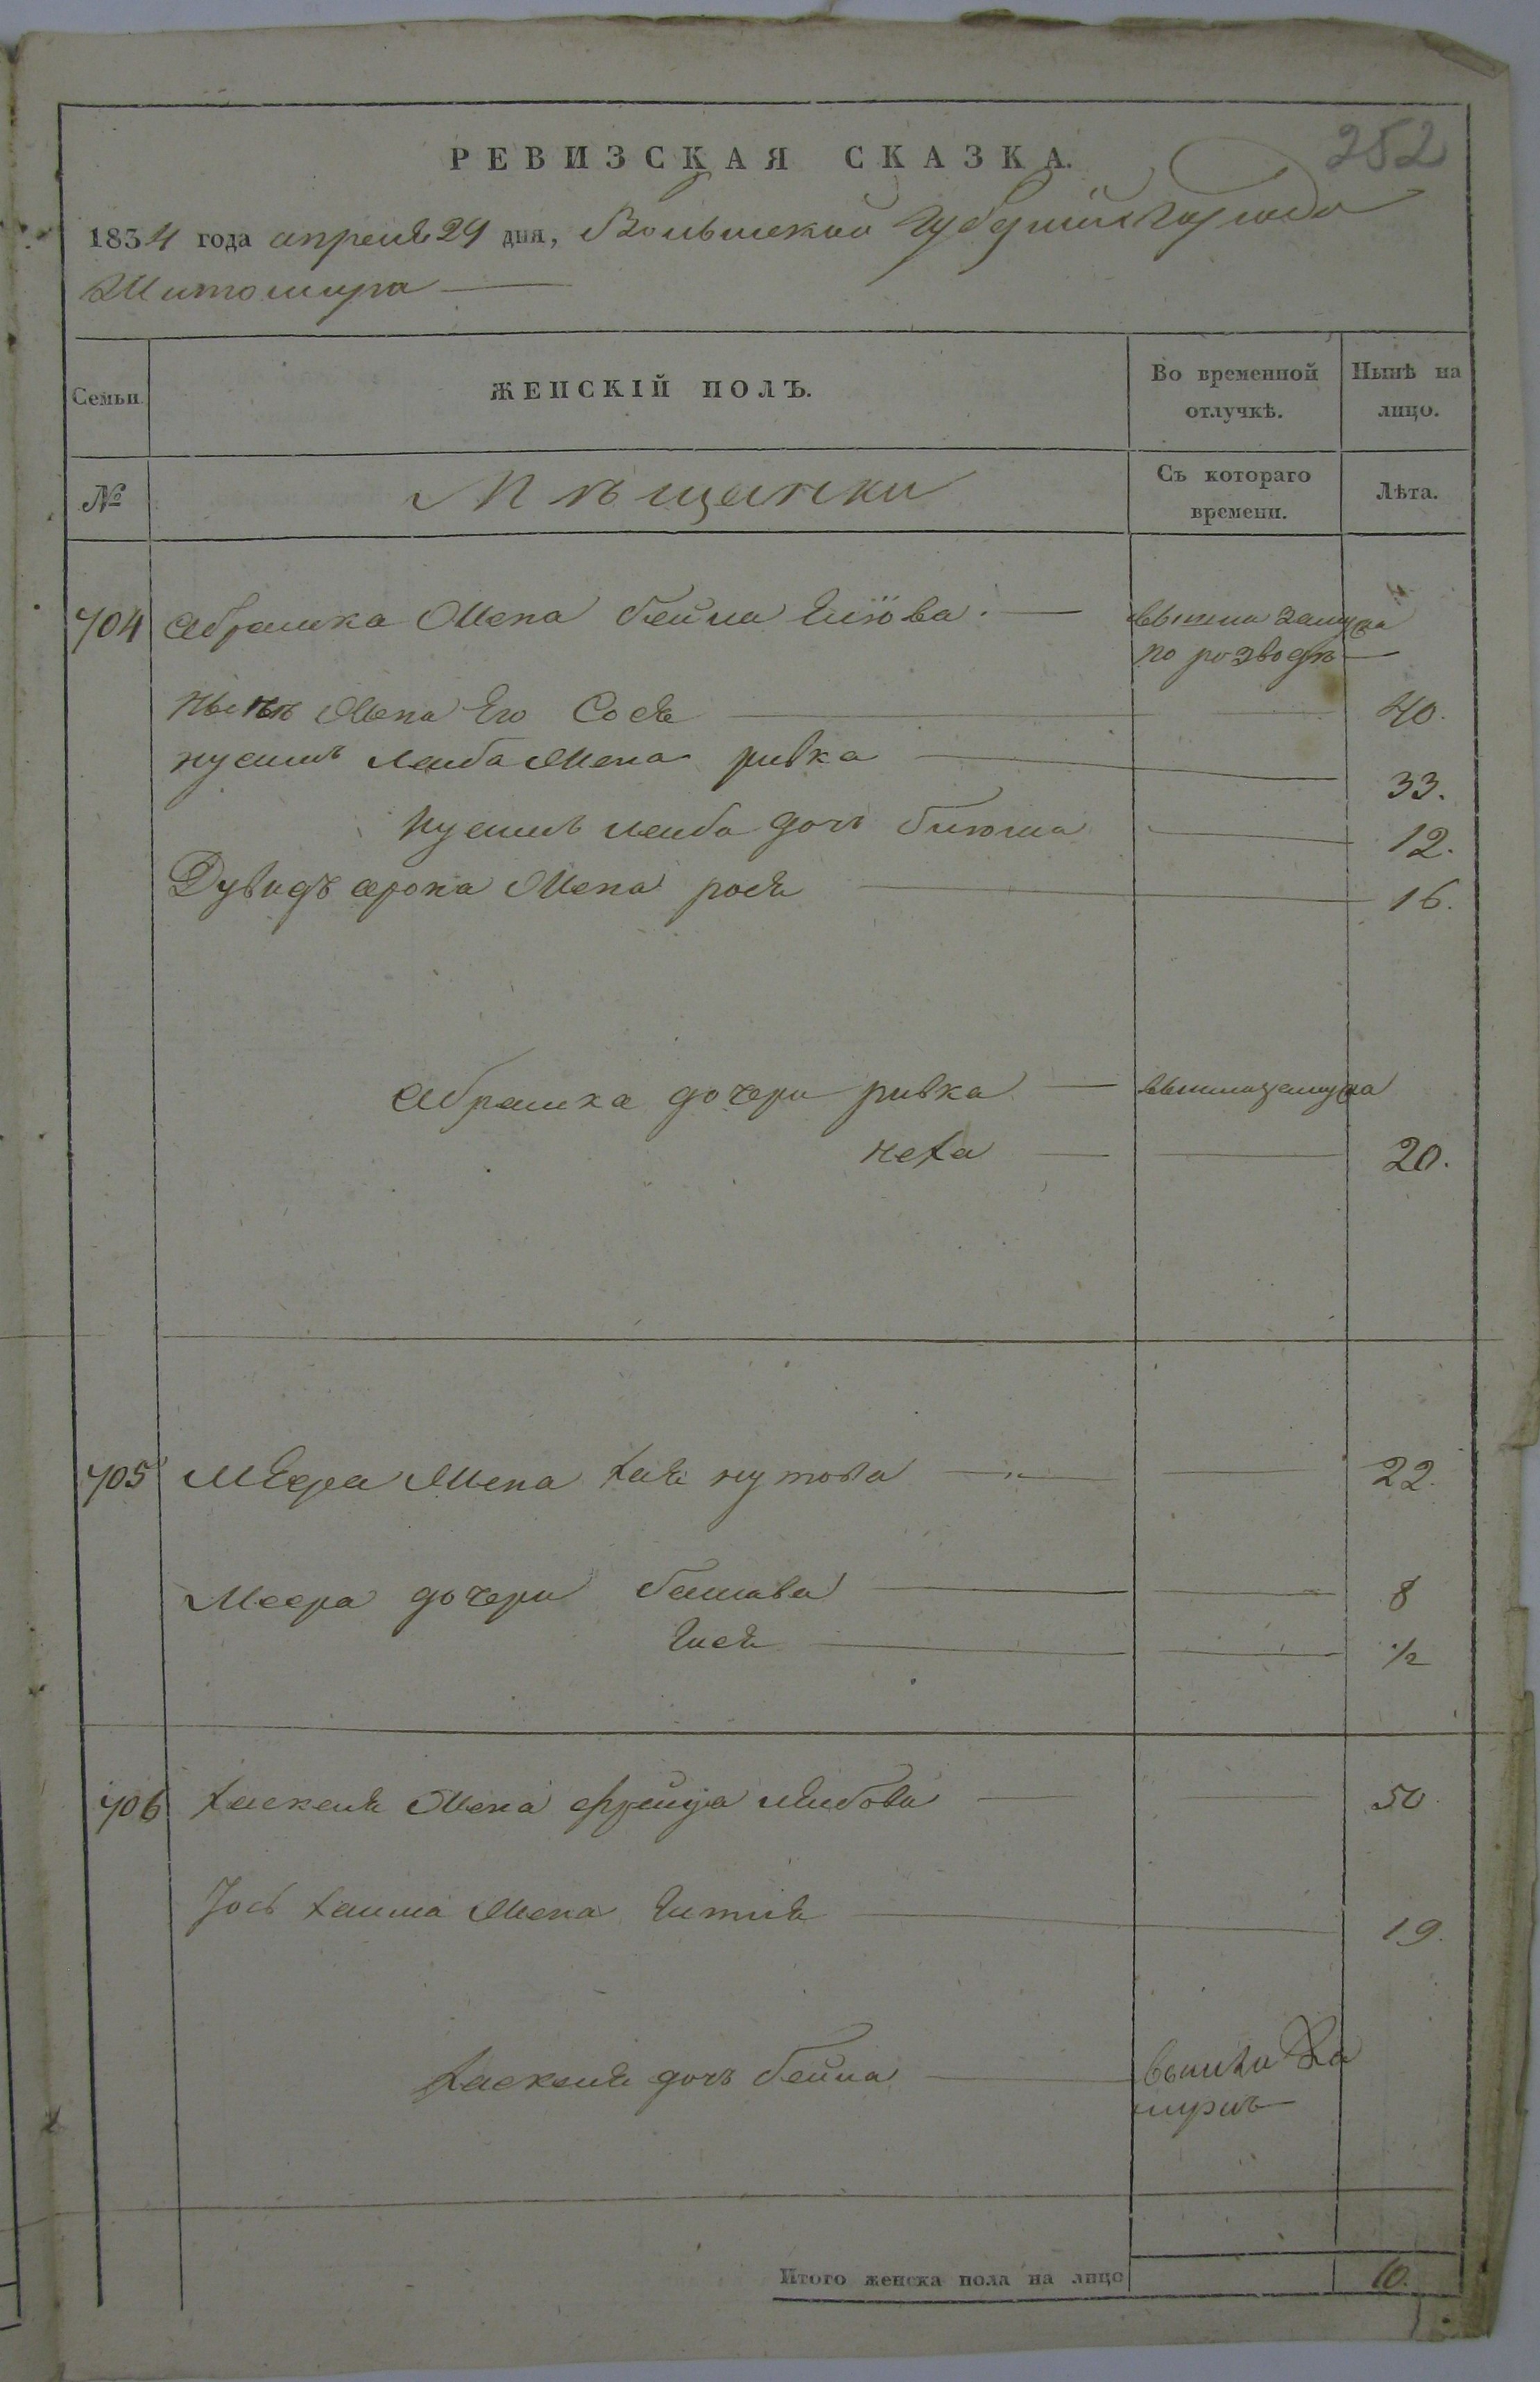 252
РЕВИЗСКАЯ СКАЗКА.
1834 года апреля 29 дня, Волынской Губернии города
Житомира
Семьи.
ЖЕНСКІЙ ПОЛЪ.
Во временной отлучкѣ.
Нынѣ на лицо.
№
Мѣщанки
Съ котораго времени.
Лѣта.
704 Абрамка Жена бейла вышла замужа
по розводѣ
нынѣ Жена Его Сося 40.
нусимъ лейба Жена ривка 33.
нусимъ лейба дочъ 12.
Дувидъ арона Жена рося 16.
Абрамка дочери ривка вышлазамужа
неха 20.
705 Меера Жена хая нутова 22.
Меера дочери башава 8
Гися 1/2
706 Хаскеля Жена фрейда лейбова 50
Іось хаима Жена Гитля 19.
Хаскеля дочъ бейла вышла За
мужъ
Итого женска пола на лицо 10.